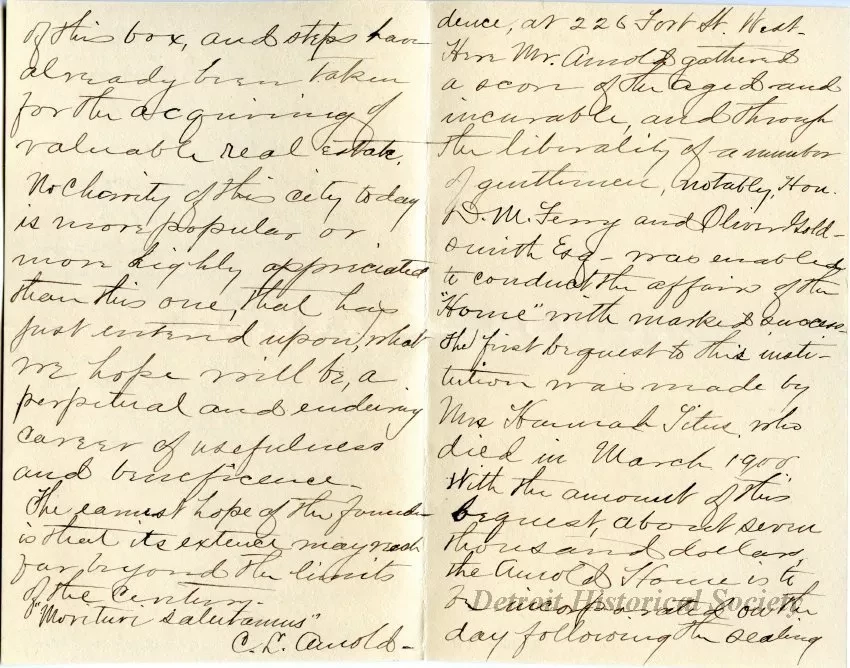 of this box, and steps have
already been taken
for the acquiring of
valuable real estate.
No charity of this city today
is more popular or
more highly appriciated
than this one, that has
just entered upon, what
we hope will be, a
perpetual and enduring
career of usefulness
and beneficence.
The earnest hope of the founder
is that its extence may reach
far beyond the limits
of the century.
"Morituri salutamus"
C. L. Arnold-
dence, at 226 Fort St. West.
Here Mr. Arnold gathered
a score of the aged and
incurable, and through
the liberality of a number
of gentlemen, notably, Hon.
D. M. Ferry and Oliver Gold-
smith Esq- was enabled
to conduct the affairs of the
"Home" with marked success.
The first bequest to this insti-
tution was made by
Mrs Hannah Titus, who
died in March 1900
With the amount of this
bequest, about seven
thousand dollars,
the Arnold Home is to
be incorporated on the
day following the sealing
Detroit Historical Society